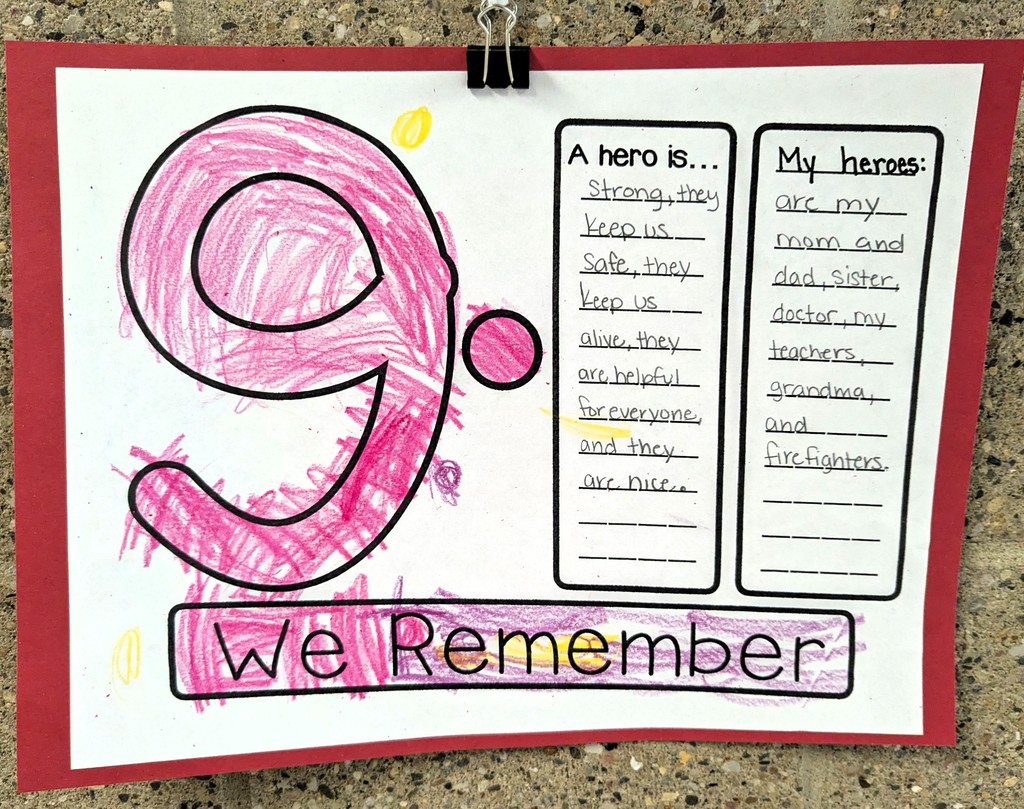 9.
A hero is...
Strong, they
keep us
safe, they
keep us
alive, they
are helpful
for everyone,
and they
are nice..
My heroes:
are my
mom and
dad, sister,
doctor, my
teachers,
grandma,
and
firefighters.
We Remember